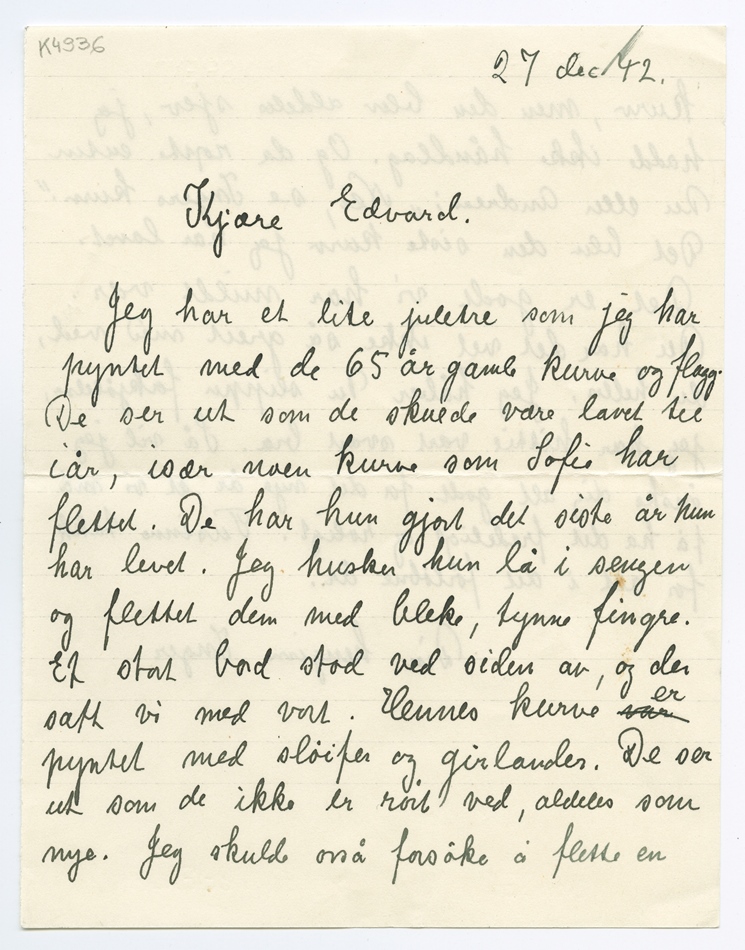 K4936
27 dec 42.
Kjære Edvard.
Jeg har et lite juletre som jeg har
pyntet med de 65 år gamle kurve og flagg.
De ser ut som de skulde være lavet til
iår, især noen kurve som Sofie har
flettet. De har hun gjort det siste år hun
har levet. Jeg husker hun lå i sengen
og flettet dem med bleke, tynne fingre.
Et stort bord stod ved siden av, og der
satt vi med vort. Hennes kurve var er
pyntet med sløifer og girlander. De ser
ut som de ikke er rört ved, aldeles som
nye. Jeg skulde også forsöke å flette en